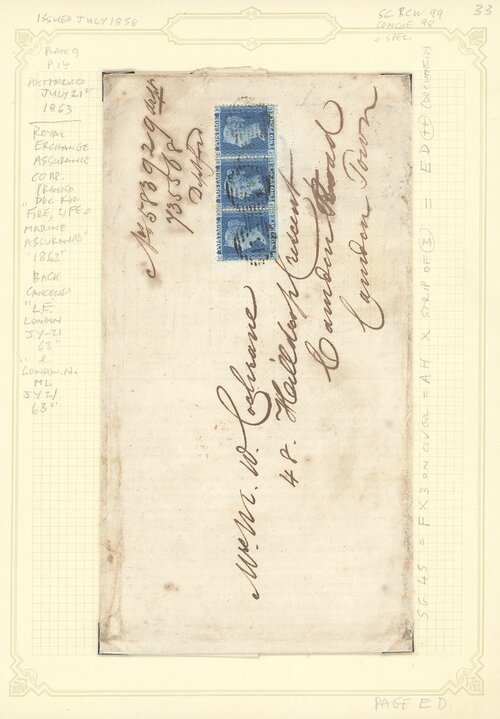 ISSUED JULY 1858
SG BCW 99
CONCISE 98
& SPEC.
33
PLATE 9
P.14
POSTMARKED
JULY 21ST
1863
ROYAL
EXCHANGE
ASSURANCE
CORP.
PRINTED
DOC. FOR
"FIRE, LIFE &
MARINE
ASSURANCES"
1863"
BACK
CANCELLED
"LE
LONDON
JY-21
63"
&
"LONDON.N.
ML
JY21
63"
Nos 583929
735568
Deptford
Mr M. W. Cochrane
48. Hilldrop Crescent
Camden Road
Camden Town
SG 45 = F X 3 ON COVER = AH X STRIP OF (3) = ED (ON DOCUMENT)
PAGE ED.